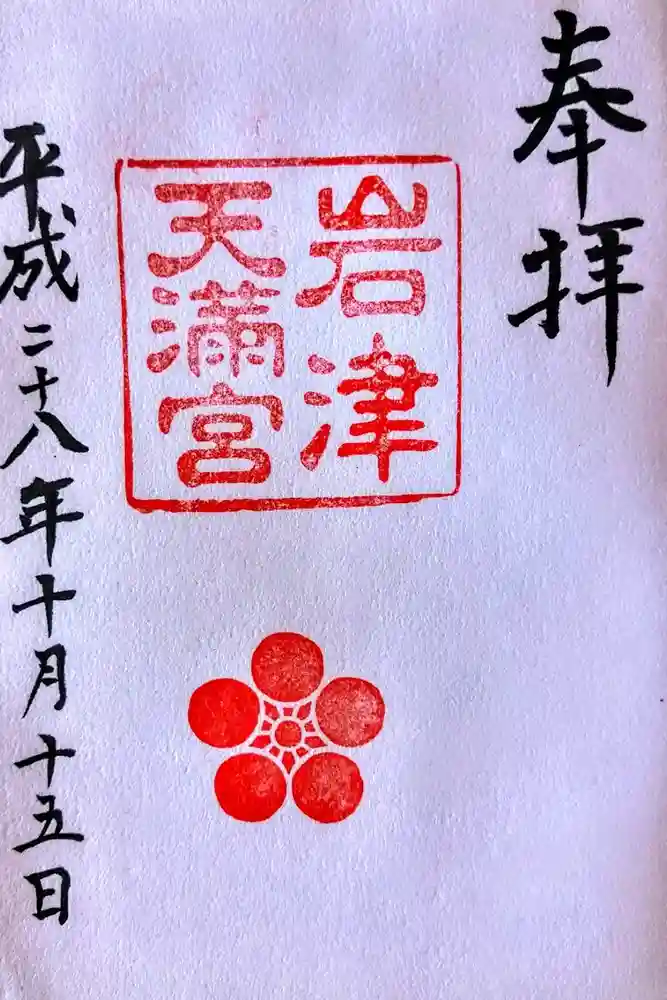 奉拝
岩津
天満宮
平成二十八年十月十五日